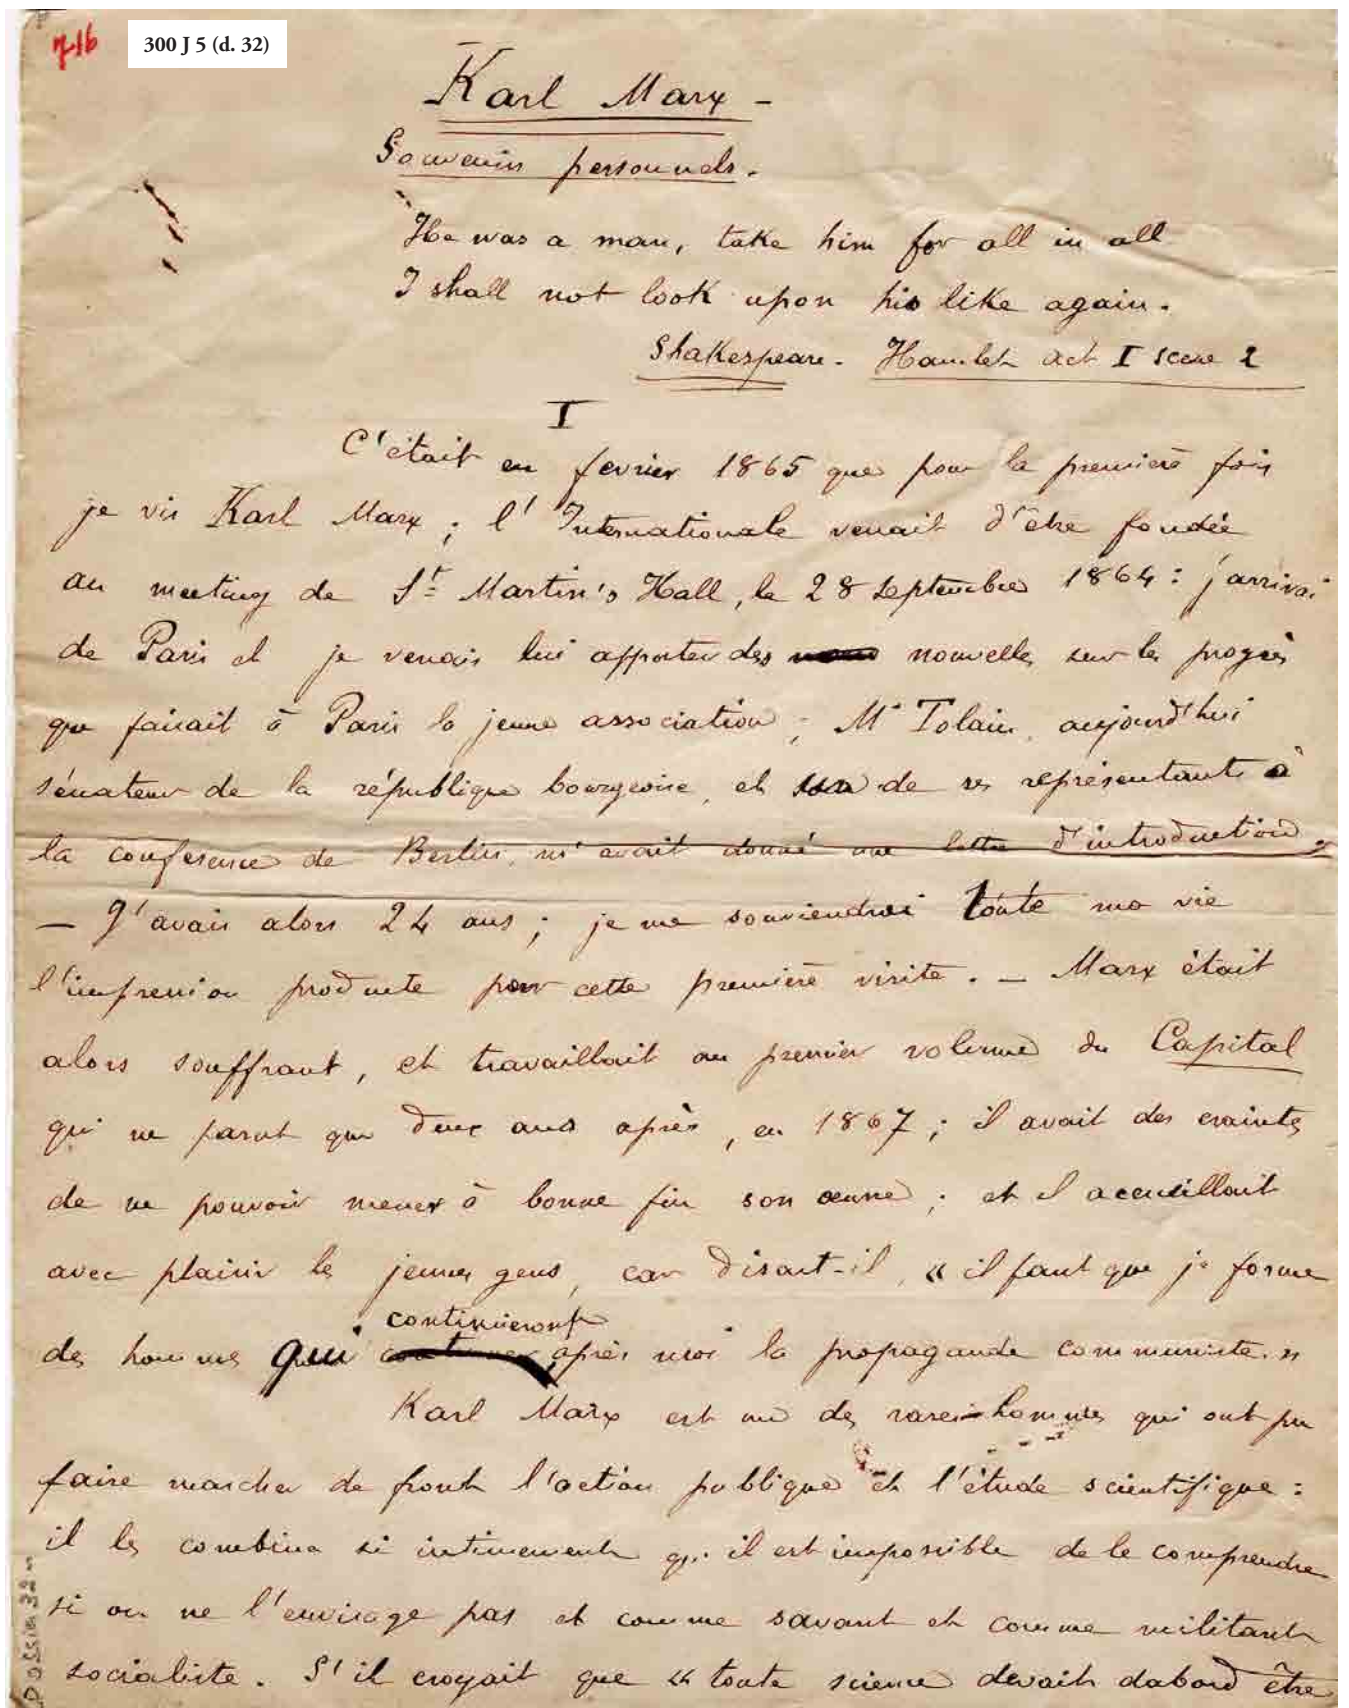 716
300 J 5 (d. 32)
Karl Marx -
Souvenirs personnels.
He was a man, take him for all in all
I shall not look upon his like again.
Shakespeare. Hamlet act I scene 2
I
C'était en fevrier 1865 que pour la première fois
je vis Karl Marx ; l'Internationale venait d'être fondée
au meeting de St Martin's Hall, le 28 septembre 1864 : j'arrivai
de Paris et je venais lui apporter des nouvelles sur les progrès
que faisait à Paris la jeune association ; Mr Tolain, aujourd'hui
sénateur de la république bourgeoise, et un de ses représentants à
la conference de Berlin, m'avait donné une lettre d'introduction,
— J'avais alors 24 ans ; je me souviendrai toute ma vie
l'impression producte par cette première visite. — Marx était
alors souffrant, et travaillait au premier volume du Capital
qui ne parut que deux ans après, en 1867 ; il avait des craintes
de ne pouvoir mener à bonne fin son œuvre ; et il accueillait
avec plaisir les jeunes gens, car disait-il, « il faut que je forme
continueront
des hommes qui après moi la propagande communiste. »
Karl Marx est un des rares hommes qui ont pu
faire marcher de front l'action publique et l'étude scientifique :
il les combina si intimement qu'il est impossible de le comprendre
si on ne l'envisage pas et comme savant et comme militant
socialiste. S'il croyait que « toute science devait dabord être
Dossier 32